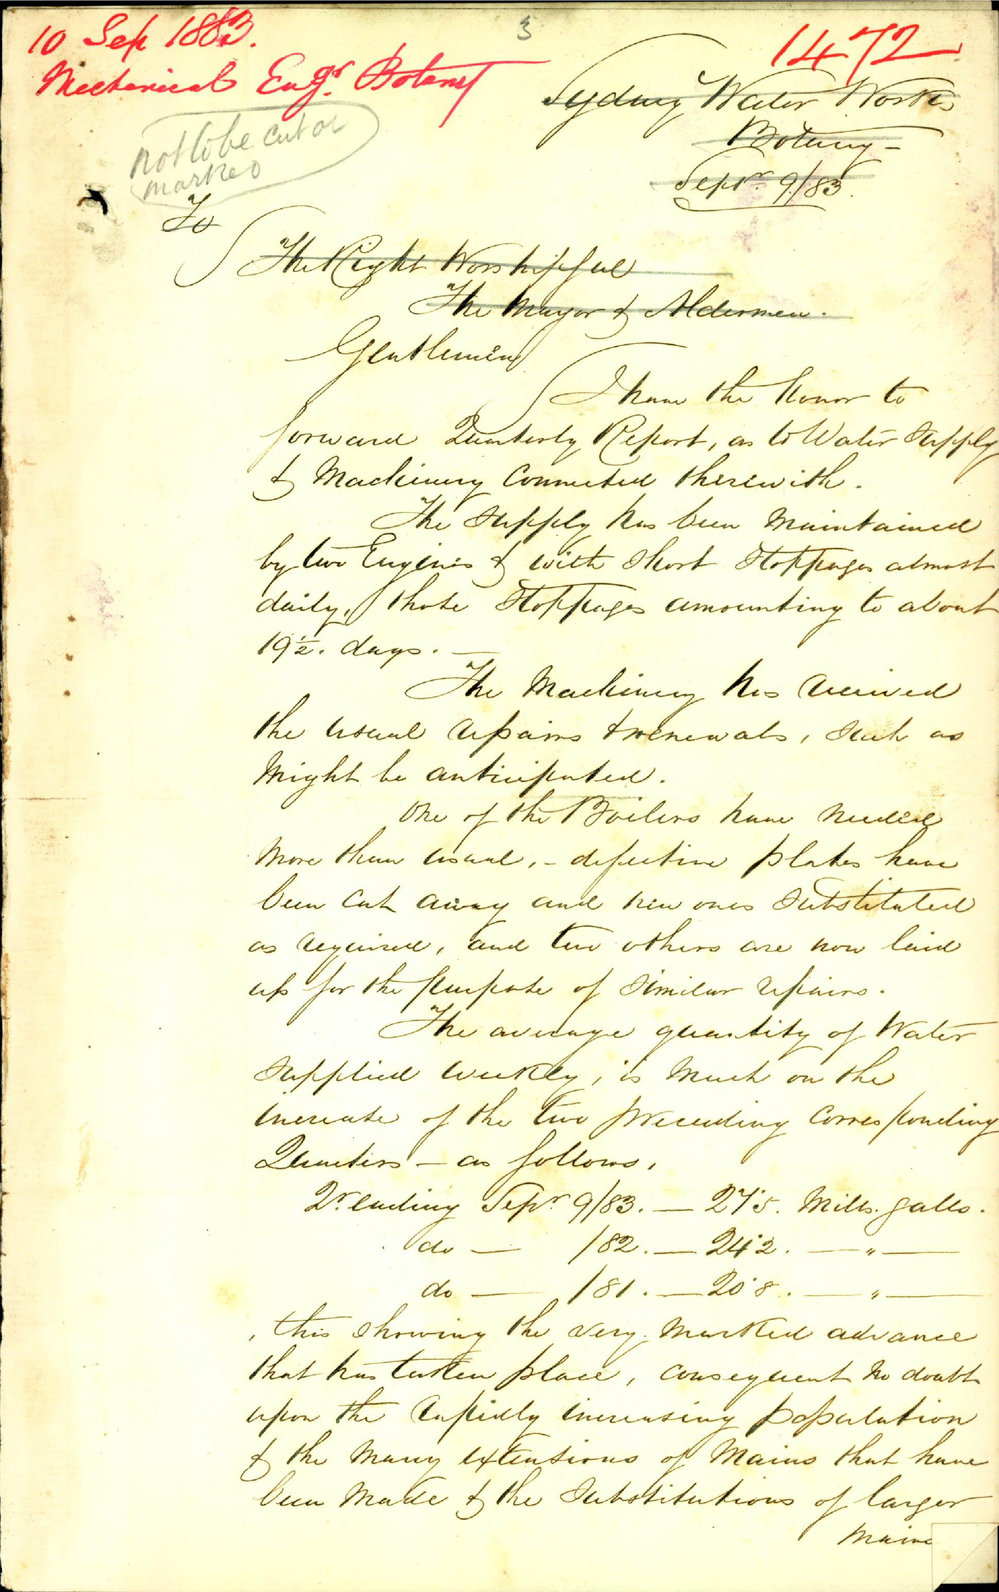 3
10 Sep 1883.
1472
Mechanical Engr. Botany
Sydney Water Works
Botany -
Septr. 9/83.
not to be cut or
marked
To
The Right Worshipful
The Mayor & Aldermen.
Gentlemen
I have the honor to
forward Quarterly Report, as to Water Supply
& Machinery Connected therewith.
The Supply has been Maintained
by two Engines & with Short Stoppages almost
daily, those Stoppages amounting to about
19½. days. —
The Machinery has received
the usual repairs & renewals, such as
Might be anticipated.
One of the Boilers have needed
More than usual, - defective plates have
been cut away and new ones Substituted
as required, and two others are now laid
up for the purpose of Similar repairs.
The average quantity of Water
Supplied weekly, is Much on the
increase of the two preceeding Corresponding
Quarters — as follows,
Qr. ending Sepr 9/83. — 27·5. Mills. galls.
do — /82. — 24·2. — " —
do — /81. — 20·8. — " —
, this showing the very Marked advance
that has taken place, consequent no doubt
upon the rapidly increasing population
& the Many extensions of Mains that have
been Made & the Substitutions of larger
Mains